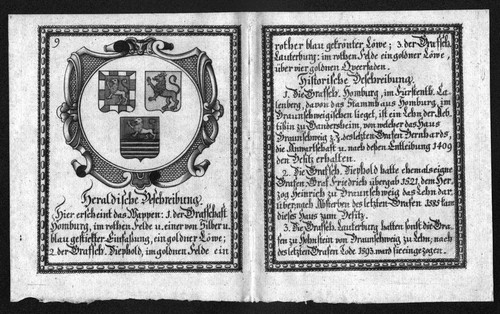 9
Heraldische Beschreibung.
Hier erscheint das Wappen: 1. der Grafschaft
Homburg, im rothen Felde u. einer von Silber u.
blau gestückter Einfassung, ein goldner Löwe;
2. der Grafsch. Diephold, im goldnen Felde ein
rother blau gekrönter Löwe; 3. der Grafsch.
Lauterburg: im rothen Felde ein goldner Löwe,
über vier goldnen Qveerfaden.
Historische Beschreibung.
1. Die Grafsch. Homburg, im Fürstenth. Ca-
lenberg, davon das Stammhaus Homburg, im
Braunschweigischen lieget, ist ein Lehn der Aeb-
tißin zu Gandersheim, von welcher das Haus
Braunschweig z. Z. des letzten Grafen Bernhards,
die Anwartschaft u. nach deßen Entleibung 1409
den Besitz erhalten.
2. Die Grafsch. Diephold hatte ehemals eigne
Grafen. Graf Friedrich übergab 1521, dem Her-
zog Heinrich zu Braunschweig das Lehn dar-
über; nach Absterben des letzten Grafen 1585 kam
dieses Haus zum Besitz.
3. Die Grafsch. Lauterburg hatten sonst die Gra-
fen zu Hohnstein von Braunschweig zu Lehn; nach
des letzten Grafen Tode 1593. ward sie eingezogen.